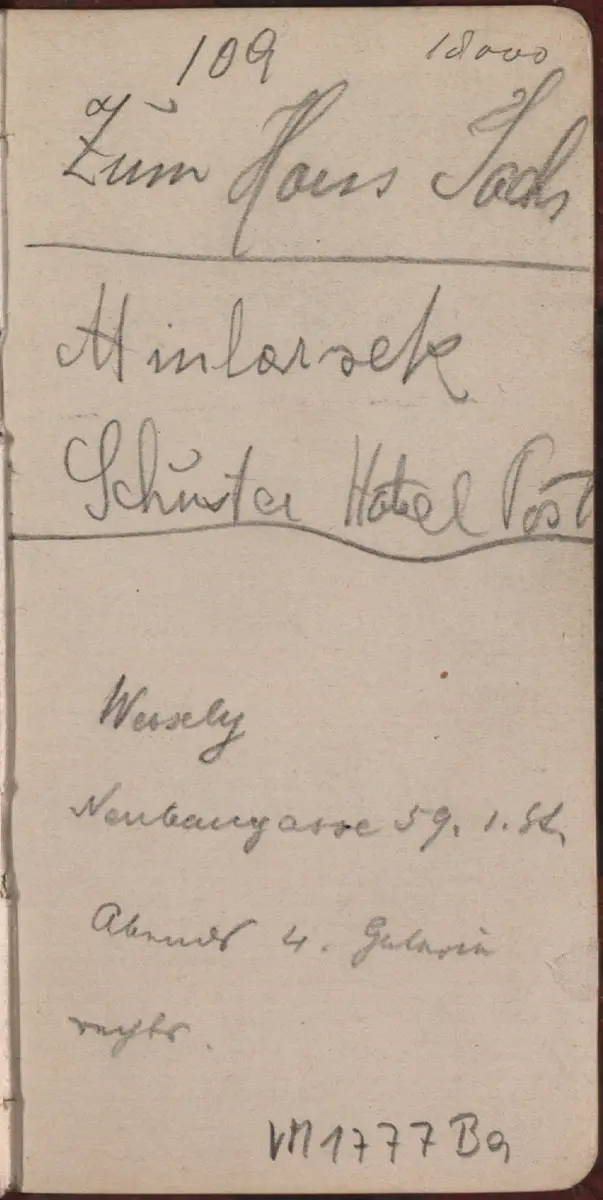 109 18000
Zum Hans Sachs
Minlarsek
Schuster Hotel Post
Wessely
Neubaugasse 59. 1. St.
Abends 4. Galerie
rechts.
1777 Ba